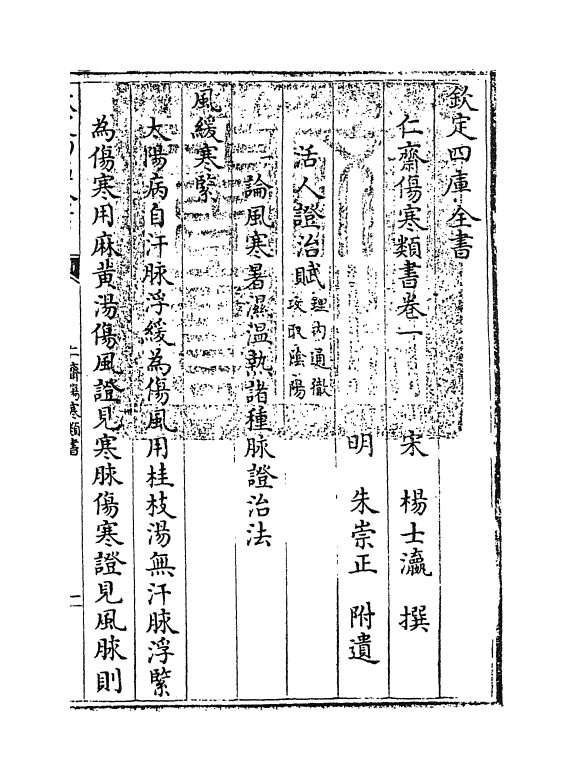 欽定四庫全書
仁齋傷寒類書卷一
宋 楊士瀛 撰
明 朱崇正 附遺
活人證治賦
理內通徹
攻取陰陽
論風寒暑濕溫熱諸種脉證治法
風緩寒緊
太陽病自汗脉浮緩為傷風用桂枝湯無汗脉浮緊
為傷寒用麻黃湯傷風證見寒脉傷寒證見風脉則
仁齋傷寒類書
一